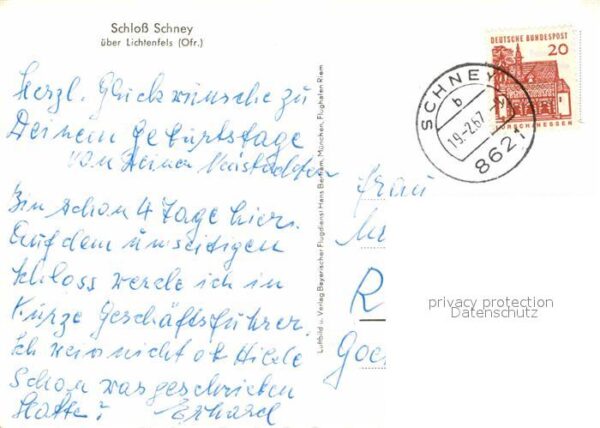 Schloß Schney
über Lichtenfels (Ofr.)
Herzl. Glückwünsche zu
Deinem Geburtstage
von Deiner
Bin schon 4 Tage hier.
Auf dem umseitigen
Schloss werde ich in
Kürze Geschäftsführer.
Ich weiss nicht ob Hilde
schon was geschrieben
hatte? Erhard
Luftbild u. Verlag Bayerischer Flugdienst Hans Bertram, München, Flughafen Riem
DEUTSCHE BUNDESPOST
20
LORSCH/HESSEN
SCHNEY
b
19.-2.67
8621
Frau
R
privacy protection
Datenschutz